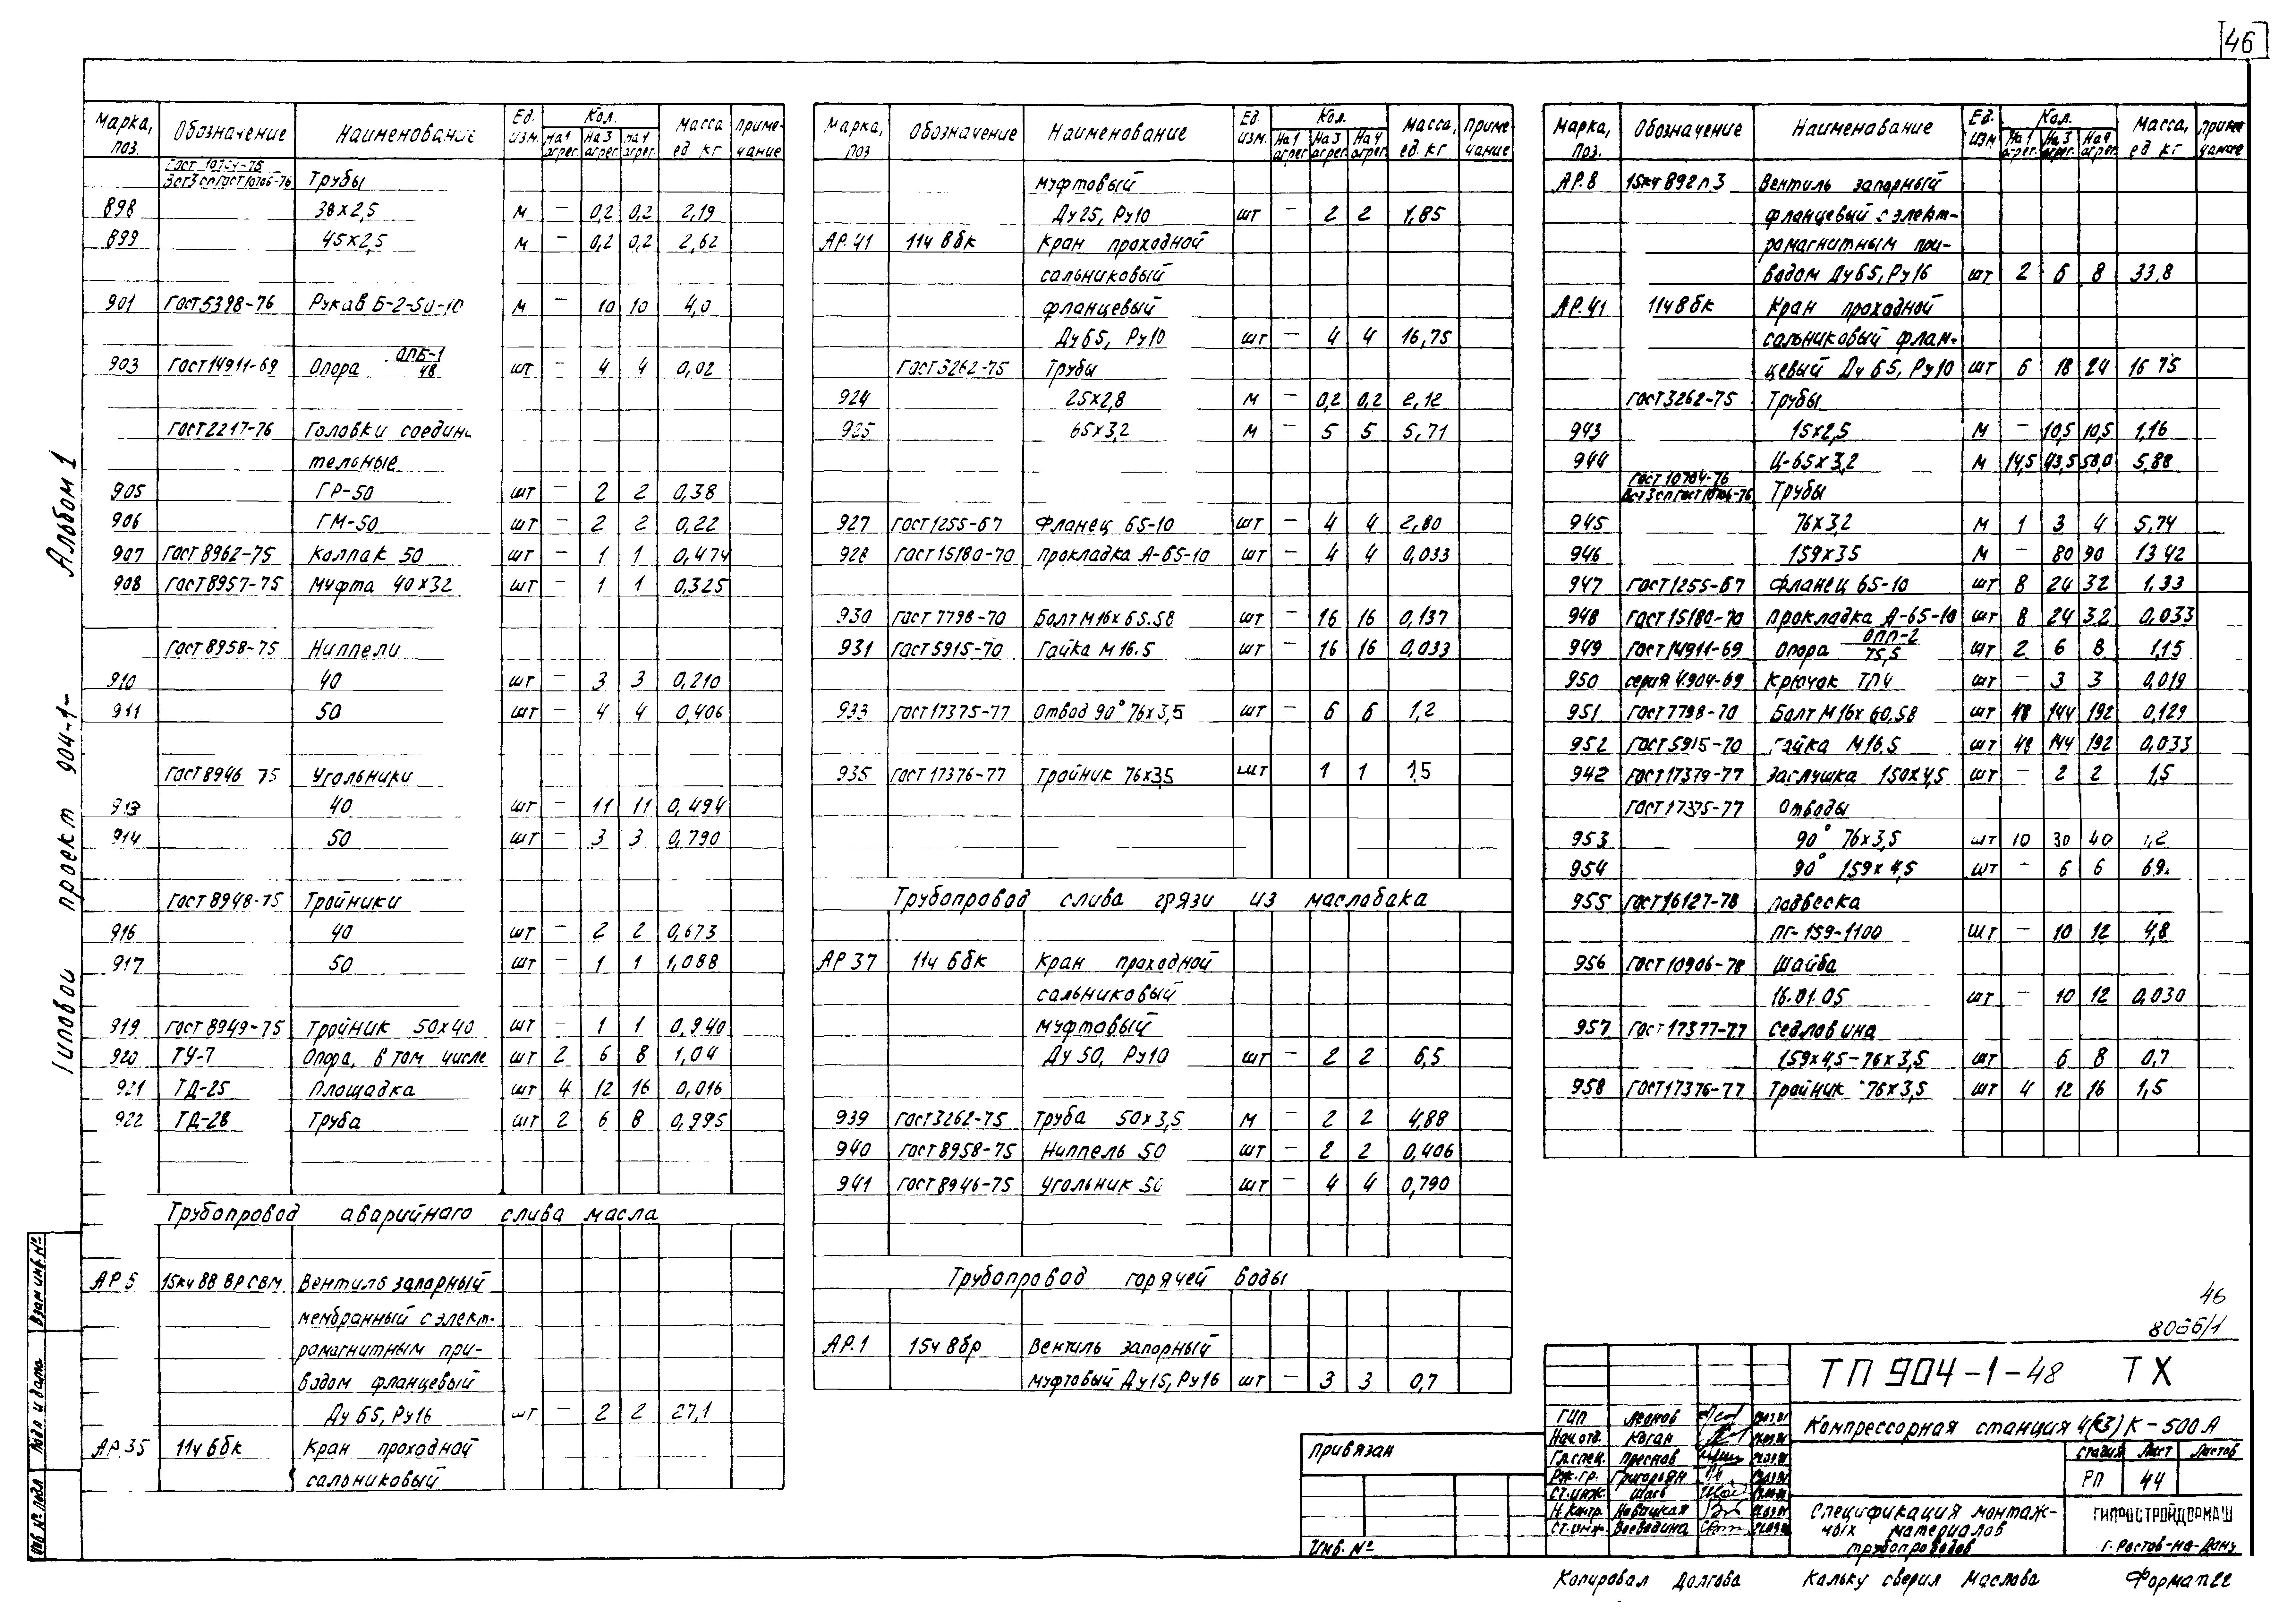 46
Альбом 1
Типовой проект 904-1-
Взам инв. №
Подп и дата
Инв № подл
Марка, поз. Обозначение Наименование Ед. изм. Кол. На 1 агрег. На 3 агрег. На 4 агрег Масса ед кг Приме-чание
Гост 10704-76
Вст3сп Гост 10706-76 Трубы
898 38х2,5 м — 0,2 0,2 2,19
899 45х2,5 м — 0,2 0,2 2,62
901 Гост 5398-76 Рукав Б-2-50-10 м — 10 10 4,0
903 Гост 14911-69 Опора ОПБ-1/48 шт — 4 4 0,02
Гост 2217-76 Головки соедини
тельные
905 ГР-50 шт — 2 2 0,38
906 ГМ-50 шт — 2 2 0,22
907 Гост 8962-75 Колпак 50 шт — 1 1 0,474
908 Гост 8957-75 Муфта 40х32 шт — 1 1 0,325
Гост 8958-75 Ниппели
910 40 шт — 3 3 0,210
911 50 шт — 4 4 0,406
Гост 8946 75 Угольники
913 40 шт — 11 11 0,494
914 50 шт — 3 3 0,790
Гост 8948-75 Тройники
916 40 шт — 2 2 0,673
917 50 шт — 1 1 1,088
919 Гост 8949-75 Тройник 50х40 шт — 1 1 0,940
920 ТУ-7 Опора, в том числе шт 2 6 8 1,04
921 ТД-25 Площадка шт 4 12 16 0,016
922 ТД-28 Труба шт 2 6 8 0,995
Трубопровод аварийного слива масла
АР.5 15кч 88 вр СВМ Вентиль запорный
мембранный с элект-
ромагнитным при-
водом фланцевый
Ду 65, Ру16 шт — 2 2 27,1
АР.35 11ч 6бк Кран проходной
сальниковый
Марка, поз Обозначение Наименование Ед. изм. Кол. На 1 агрег. На 3 агрег. На 4 агрег. Масса, ед. кг Приме-чание
муфтовый
Ду 25, Ру10 шт — 2 2 1,85
АР.41 11ч 8бк Кран проходной
сальниковый
фланцевый
Ду 65, Ру10 шт — 4 4 16,75
Гост 3262-75 Трубы
924 25х2,8 м — 0,2 0,2 2,12
925 65х3,2 м — 5 5 5,71
927 Гост 1255-67 Фланец 65-10 шт — 4 4 2,80
928 Гост 15180-70 Прокладка А-65-10 шт — 4 4 0,033
930 Гост 7798-70 Болт М16х65.58 шт — 16 16 0,137
931 Гост 5915-70 Гайка М16.5 шт — 16 16 0,033
933 Гост 17375-77 Отвод 90° 76х3,5 шт — 6 6 1,2
935 Гост 17376-77 Тройник 76х3,5 шт 1 1 1,5
Трубопровод слива грязи из маслобака
АР 37 11ч 6бк Кран проходной
сальниковый
муфтовый
Ду 50, Ру10 шт — 2 2 6,5
939 Гост 3262-75 Труба 50х3,5 м — 2 2 4,88
940 Гост 8958-75 Ниппель 50 шт — 2 2 0,406
941 Гост 8946-75 Угольник 50 шт — 4 4 0,790
Трубопровод горячей воды
АР.1 15ч 8бр Вентиль запорный
муфтовый Ду15, Ру16 шт — 3 3 0,7
Марка, поз. Обозначение Наименование Ед. изм Кол. На 1 агрег. На 3 агрег. На 4 агрег. Масса, ед кг Приме чание
АР.8 15кч 892п3 Вентиль запорный
фланцевый с элект-
ромагнитным при-
водом Ду 65, Ру16 шт 2 6 8 33,8
АР.41 11ч 8бк Кран проходной
сальниковый флан-
цевый Ду 65, Ру10 шт 6 18 24 16 75
Гост 3262-75 Трубы
943 15х2,5 м — 10,5 10,5 1,16
944 Ц-65х3,2 м 14,5 43,5 58,0 5,88
Гост 10704-76
Вст3сп Гост 10706-76 Трубы
945 76х3,2 м 1 3 4 5,74
946 159х35 м — 80 90 13 42
947 Гост 1255-67 Фланец 65-10 шт 8 24 32 1,33
948 Гост 15180-70 Прокладка А-65-10 шт 8 24 32 0,033
949 Гост 14911-69 Опора ОПП-2/75,5 шт 2 6 8 1,15
950 серия 4.904-69 Крючок ТПЧ шт — 3 3 0,019
951 Гост 7798-70 Болт М16х60.58 шт 48 144 192 0,129
952 Гост 5915-70 Гайка М16.5 шт 48 144 192 0,033
942 Гост 17379-77 Заглушка 150х4,5 шт — 2 2 1,5
Гост 17375-77 Отводы
953 90° 76х3,5 шт 10 30 40 1,2
954 90° 159х4,5 шт — 6 6 6,9
955 Гост 16127-78 Подвеска
ПГ-159-1100 шт — 10 12 4,8
956 Гост 10906-78 Шайба
16.01.05 шт — 10 12 0,030
957 Гост 17377-77 Седловина
159х4,5-76х3,5 шт 6 8 0,7
958 Гост 17376-77 Тройник 76х3,5 шт 4 12 16 1,5
46
8066/1
ТП 904-1-48 ТХ
Компрессорная станция 4(3)К-500А
Стадия Лист Листов
РП 44
Спецификация монтаж-
ных материалов
трубопроводов
ГИПРОСТРОЙДОРМАШ
г. Ростов-на-Дону
ГИП Леонов
Нач.отд. Коган
Гл.спец. Преснов
Рук.гр. Григорьян
Ст.инж. Шась
Н.контр. Новицкая
Ст.инж. Воеводина
Привязан
Инв. №
Копировал Долгова Кальку сверил Маслова Формат 22